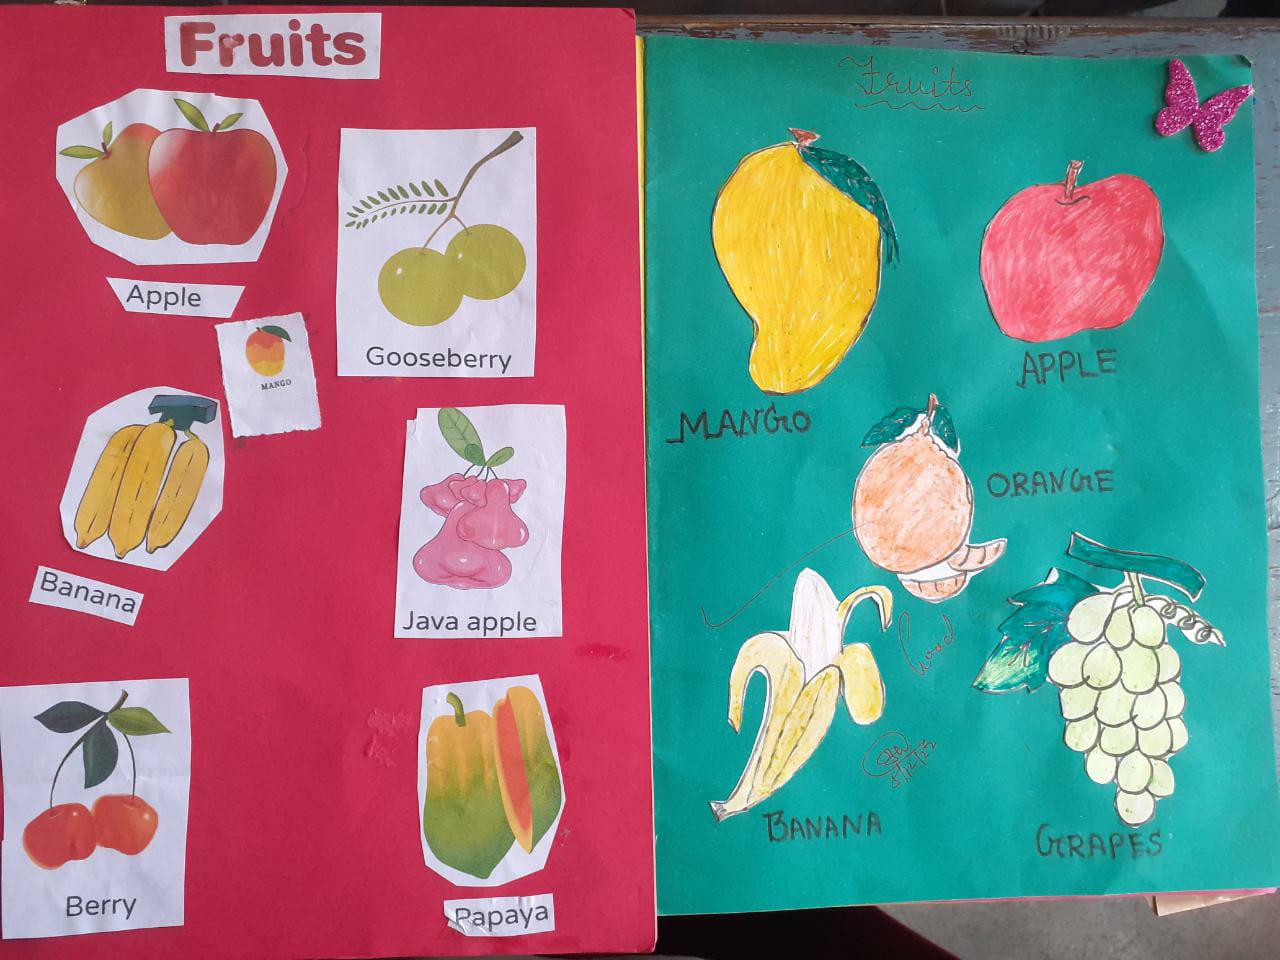 Fruits
Apple
Gooseberry
MANGO
Banana
Java apple
Berry
Papaya
Fruits
MANGO
APPLE
ORANGE
Good
5/12/22
BANANA
GRAPES